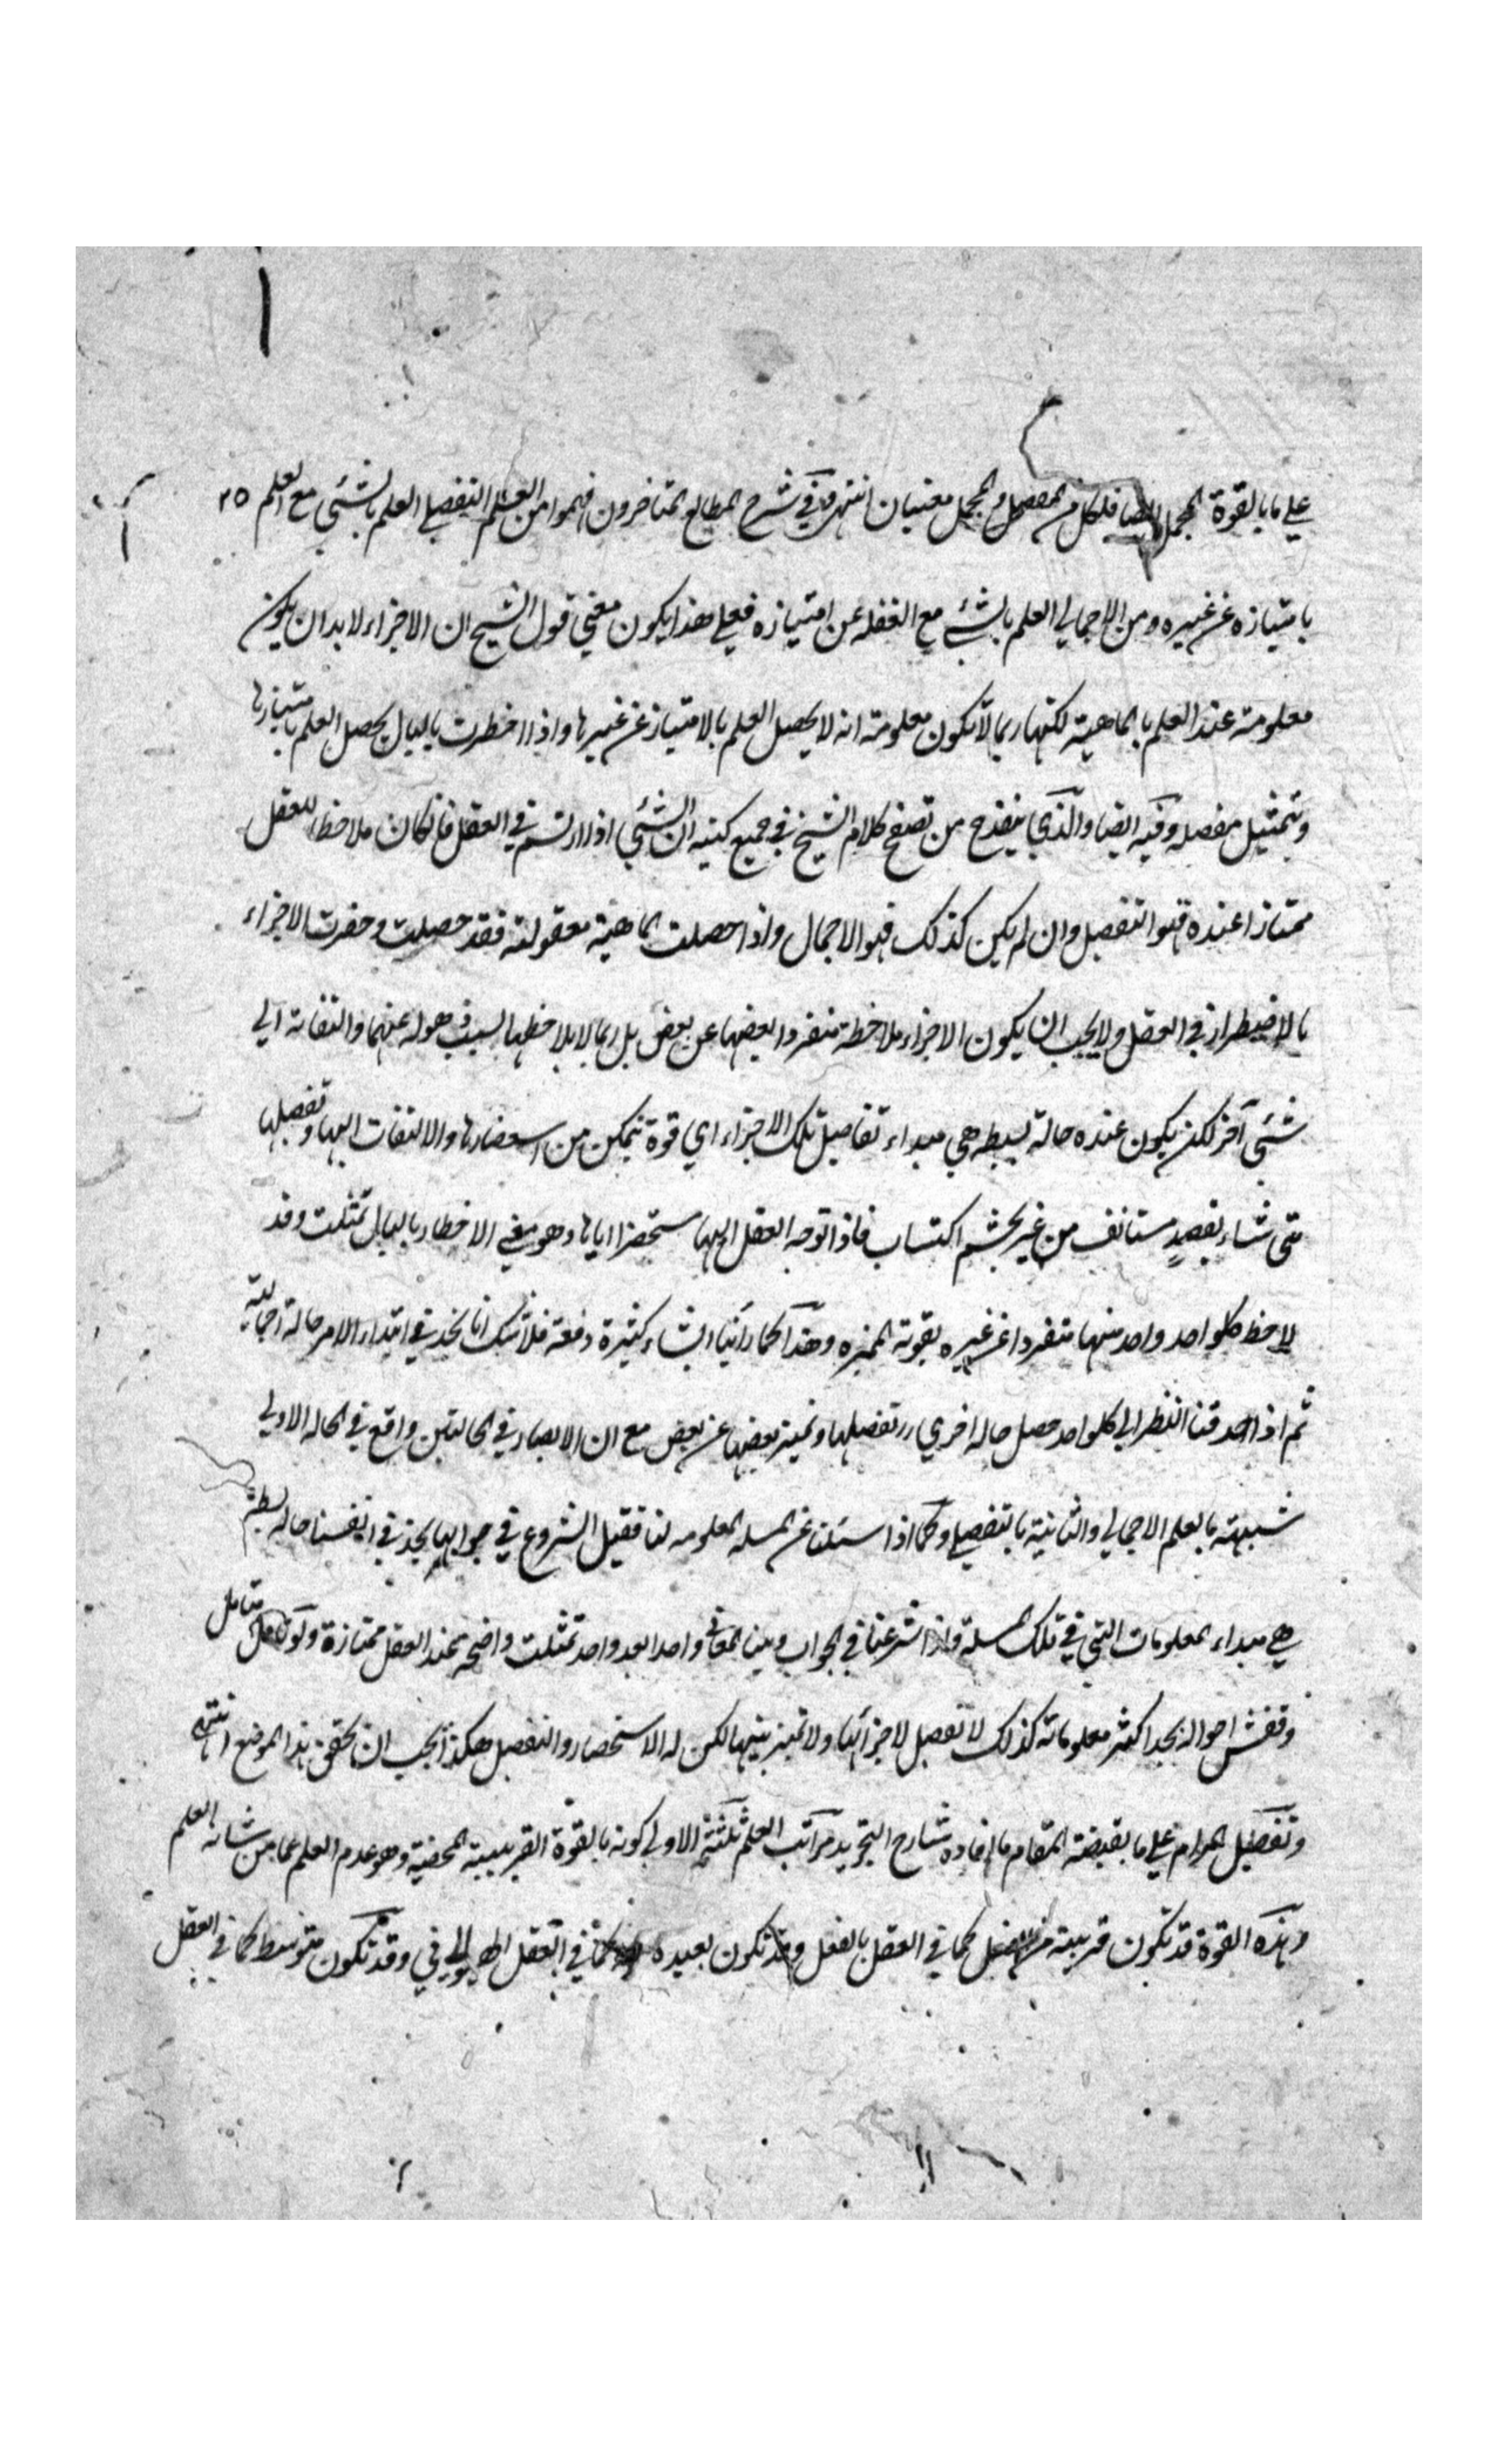 علي ما بالقوة المجمل ايضا فلكل من المفصل والمجمل معنيان انتهي وفي شرح المطالع المتاخرون فهموا من العلم التفصيلي العلم بالشئي مع العلم ٢٥
بامتيازه عن غيره ومن الاجمالي العلم بالشئ مع الغفله عن امتيازه فعلي هذا يكون معني قول الشيخ ان الاجزاء لابد ان يكون
معلومة عند العلم بالماهية لكنها ربما لا تكون معلومة انه لا يحصل العلم بالامتياز عن غيرها واذا اخطرت بالبال يحصل العلم بامتيازها
وتتمثيل مفصله وفيه ايضا والذي ينقدح من تصفح كلام الشيخ في جميع كتبه ان الشئي اذا ارتسم في العقل فان كان ملاحظا للعقل
ممتازا عنده فهو التفصيل وان لم يكن كذلك فهو الاجمال واذا حصلت الماهية معقولة فقد حصلت وحضرت الاجزاء
بالاضطرار في العقل ولا يجب ان يكون الاجزاء ملاحظة منفردا بعضها عن بعض بل ربما لا يلاحظها لسبب ذهوله عنها والتفاته الي
شئي آخر لكن يكون عنده حالة بسيطه هي مبداء تفاصيل تلك الاجزاء اي قوة يتمكن من استحضارها والالتفات اليها وتفصيلها
متي شاء بقصد مستانف من غير تجشم اكتساب فاذا توجه العقل اليها مستحضرا اياها وهو معني الاخطار بالبال تمثلت وقد
لاحظ كلواحد واحد منها منفردا عن غيره بقوته المميزه وهذا كما رأينا اشياء كثيرة دفعة فلا شك انا نجد في ابتداء الامر حالة اجمالية
ثم اذا حدقنا النظر الي كلواحد حصل حاله اخري وتفصيلها وتميز بعضها عن بعض مع ان الابصار في الحالتين واقع في الحاله الاولي
شبيهة بالعلم الاجمالي والثانية بالتفصيلي وكما اذا سئلنا عن المسله المعلومه لنا فقبل الشروع في جوابها نجد في انفسنا حاله بسيطة
هي مبداء المعلومات التي في تلك المسلة واذا شرعنا في الجواب وبينا المعاني واحدا بعد واحد تمثلت واضحه عند العقل ممتازة ولو تامل متامل
وفتش احواله يجد اكثر معلوماته كذلك لا تفصيل لاجزائها ولا تميز بينها لكن له الاستحضار والتفصيل هكذا يجب ان يحقق هذا الموضع انتهي
وتفصيل المرام علي ما يقتضيه المقام ما افاده شارح التجريد مراتب العلم ثلثة الاولي كونه بالقوة القريبة المحضة وهو عدم العلم عما من شانه العلم
وهذه القوة قد تكون قريبة من الفعل كما في العقل بالفعل وقد تكون بعيده كما في العقل الهيولاني وقد تكون متوسط كما في العقل